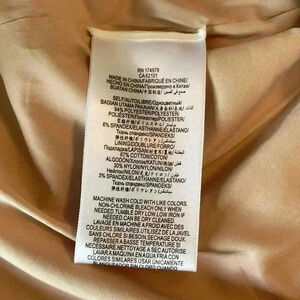 RN 174979
CA 62101
MADE IN CHINA/FABRIQUÉ EN CHINE/
HECHO EN CHINA/Произведено в Китае/
BUATAN CHINA/中国制造/صنع في الصين
SELF/AUTO/LIBRE/Одноцветный/
BAGIAN UTAMA PAKAIAN/
94% POLYESTER/POLYESTER/
POLIÉSTER/
6% SPANDEX/ELASTHANNE/ELASTANO/
Ткань спандекс/SPANDEKS/
LINING/DOUBLURE/FORRO/
Подкладка/LAPISAN/
67% COTTON/COTON/
ALGODÓN/Хлопок/KATUN/قطن
30% NYLON/NYLON/NILÓN/
Нейлон/NILON/
3% SPANDEX/ELASTHANNE/ELASTANO/
Ткань спандекс/SPANDEKS/
MACHINE WASH COLD WITH LIKE COLORS
NON-CHLORINE BLEACH ONLY WHEN
NEEDED TUMBLE DRY LOW LOW IRON IF
NEEDED.CAN BE DRY CLEANED
LAVAGE EN MACHINE A FROID AVEC DES
COULEURS SIMILAIRES UTILISEZ DE LA JAVEL
SANS CHLORE SI NECESSAIRE SECHAGE DOUX
REPASSER A BASSE TEMPERATURE SI
NECESSAIRE. NETTOYAGE A SEC
LAVAR A MAQUINA EN AGUA FRIA CON
COLORES SIMILARES USAR UNICAMENTE